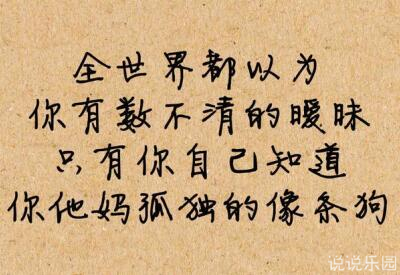 全世界都以为
你有数不清的暧昧
只有你自己知道
你他妈孤独的像条狗
说说乐园